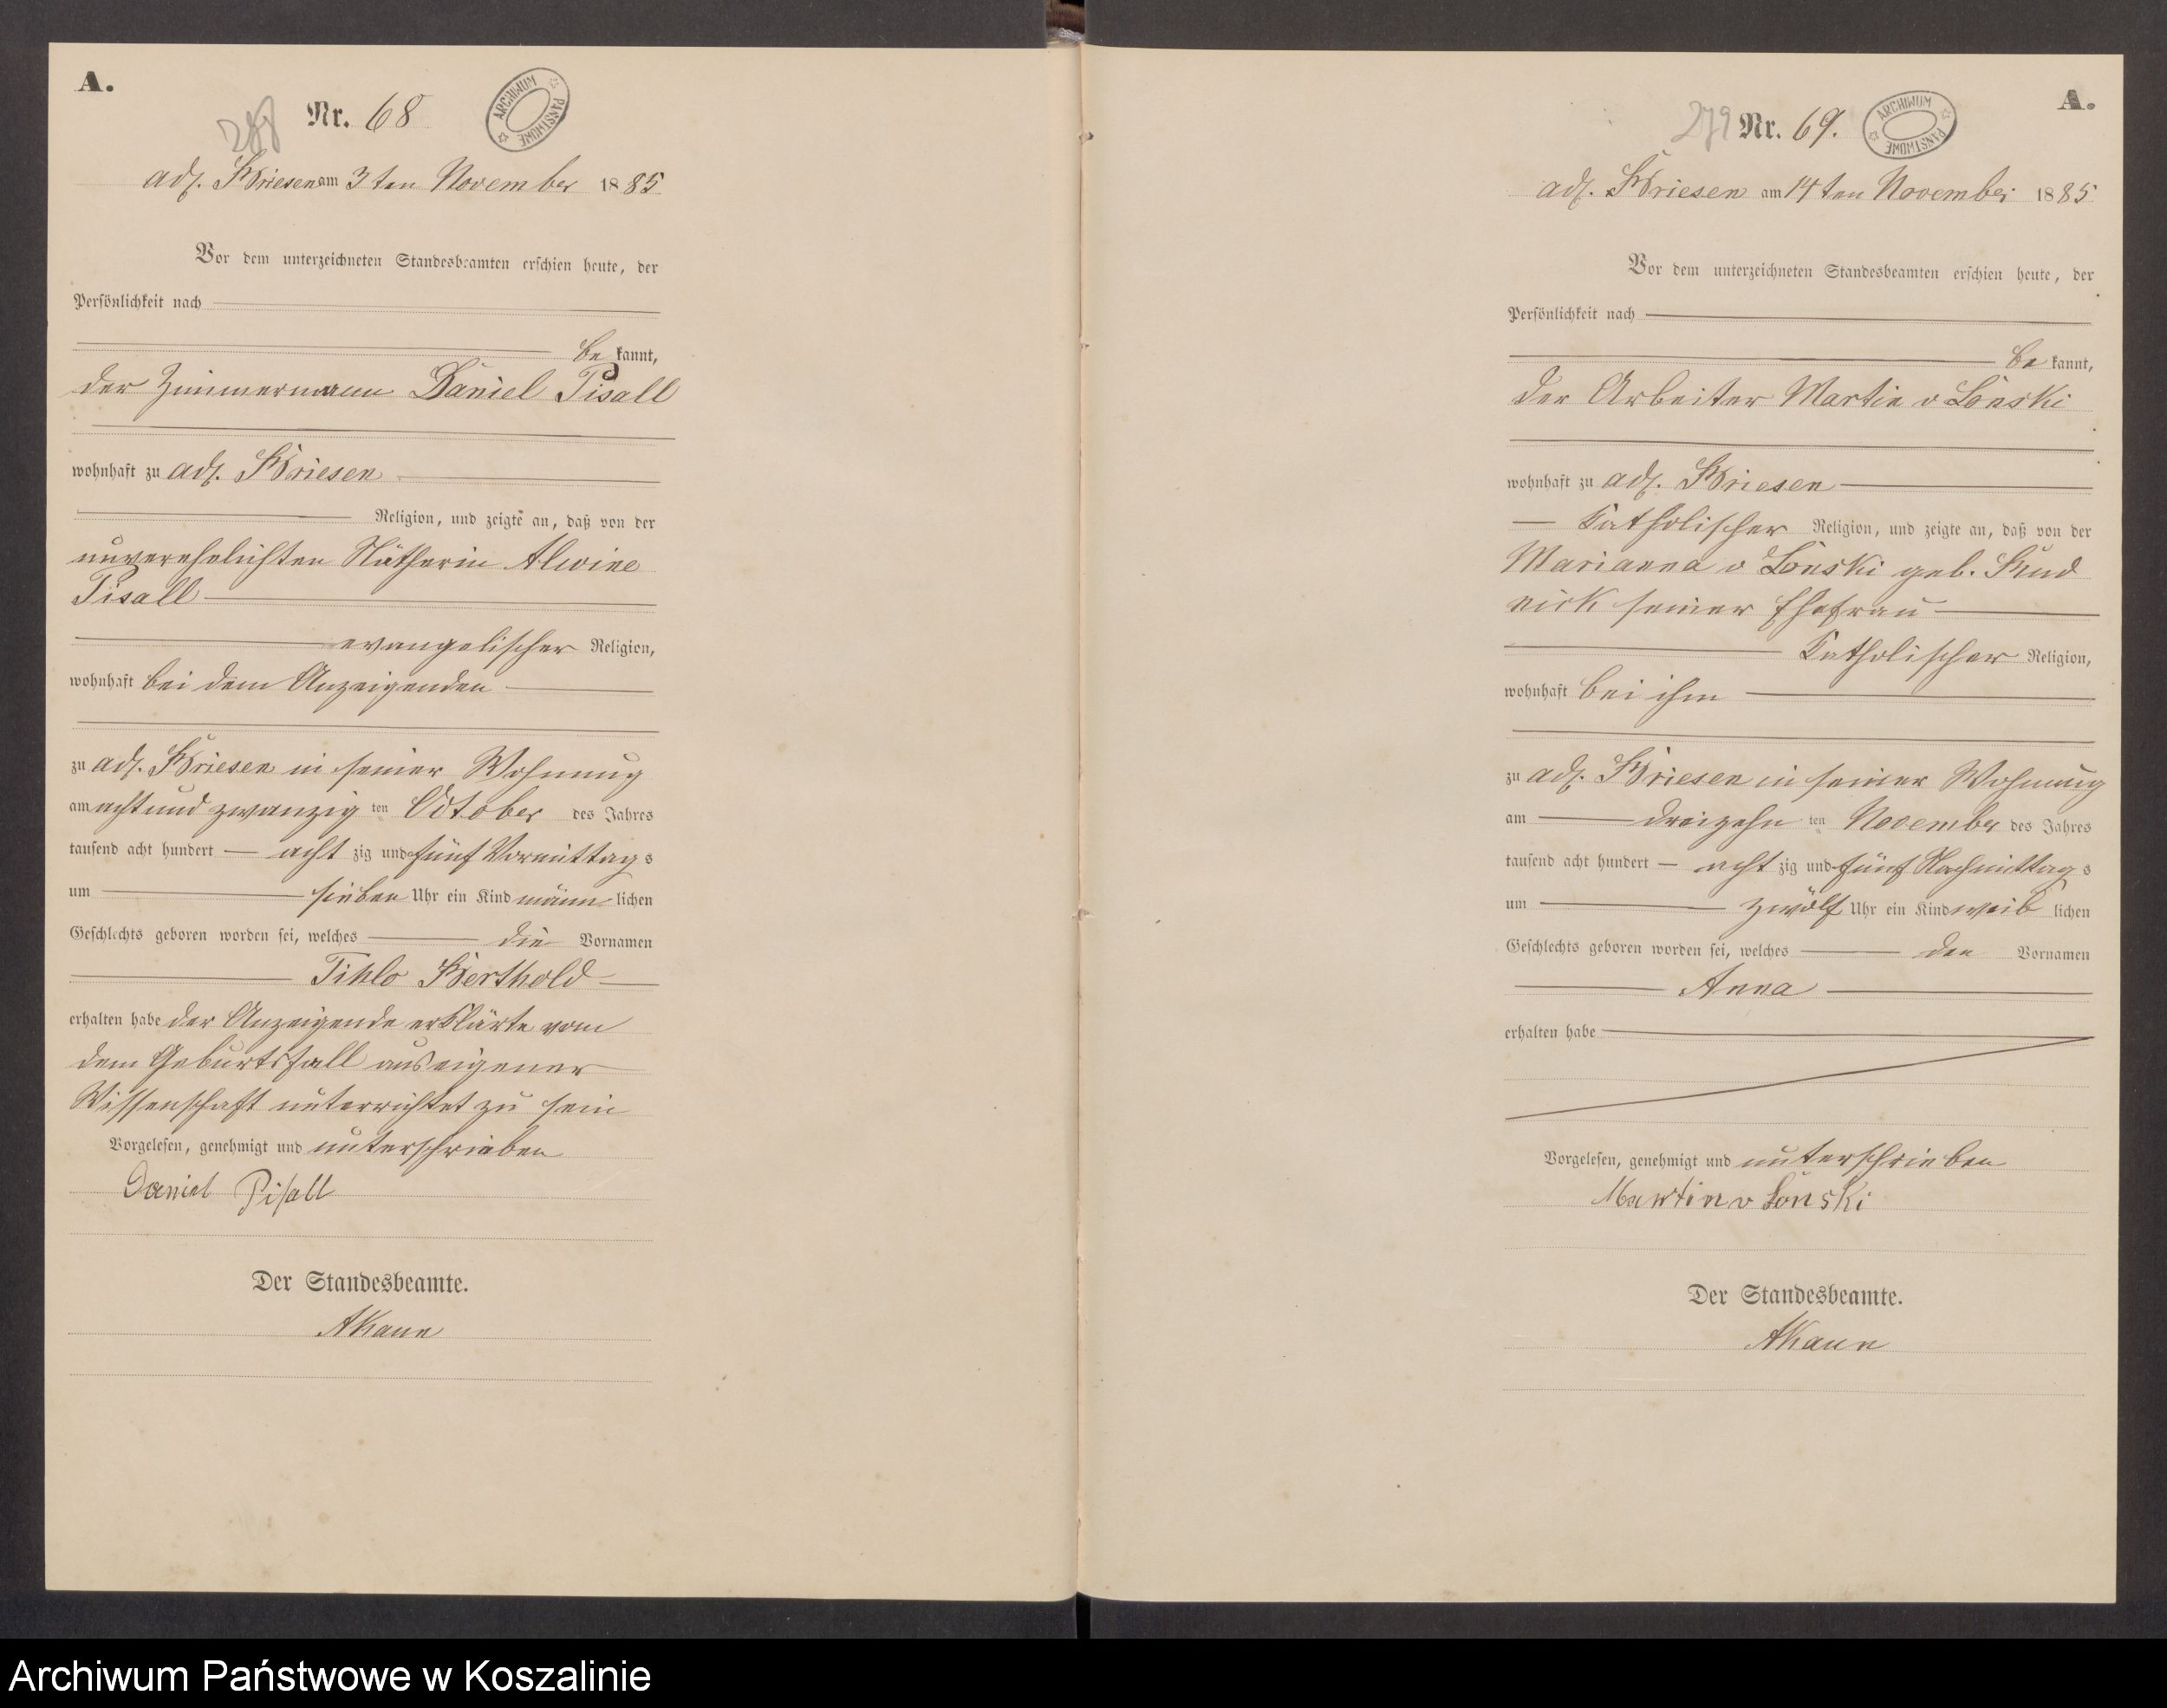 A.
288 Nr. 68
ARCHIWUM PAŃSTWOWE
adl. Briesen am 3 ten November 1885
Vor dem unterzeichneten Standesbeamten erschien heute, der
Persönlichkeit nach
be kannt,
der Zimmermann Daniel Pisall
wohnhaft zu adl. Briesen
Religion, und zeigte an, daß von der
unverehelichten Nätherin Alwine
Pisall
evangelischer Religion,
wohnhaft bei dem Anzeigenden
zu adl. Briesen in seiner Wohnung
am acht und zwanzig ten October des Jahres
tausend acht hundert acht zig und fünf Vormittag s
um sieben Uhr ein Kind männ lichen
Geschlechts geboren worden sei, welches die Vornamen
Berthold
erhalten habe der Anzeigende erklärte vom
dem Geburtsfall aus eigener
Wissenschaft unterrichtet zu sein
Vorgelesen, genehmigt und unterschrieben
Daniel Pisall
Der Standesbeamte.
AKaun
A.
279 Nr. 69.
ARCHIWUM PAŃSTWOWE
adl. Briesen am 14 ten November 1885
Vor dem unterzeichneten Standesbeamten erschien heute, der
Persönlichkeit nach
be kannt,
der Arbeiter Martin v Lonski
wohnhaft zu adl. Briesen
Katholischer Religion, und zeigte an, daß von der
Marianna v Lonski geb. Rud
nick seiner Ehefrau
Katholischer Religion,
wohnhaft bei ihm
zu adl. Briesen in seiner Wohnung
am dreizehn ten November des Jahres
tausend acht hundert acht zig und fünf Nachmittag s
um zwölf Uhr ein Kind weib lichen
Geschlechts geboren worden sei, welches den Vornamen
Anna
erhalten habe
Vorgelesen, genehmigt und unterschrieben
Martin v Lonski
Der Standesbeamte.
AKaun
Archiwum Państwowe w Koszalinie